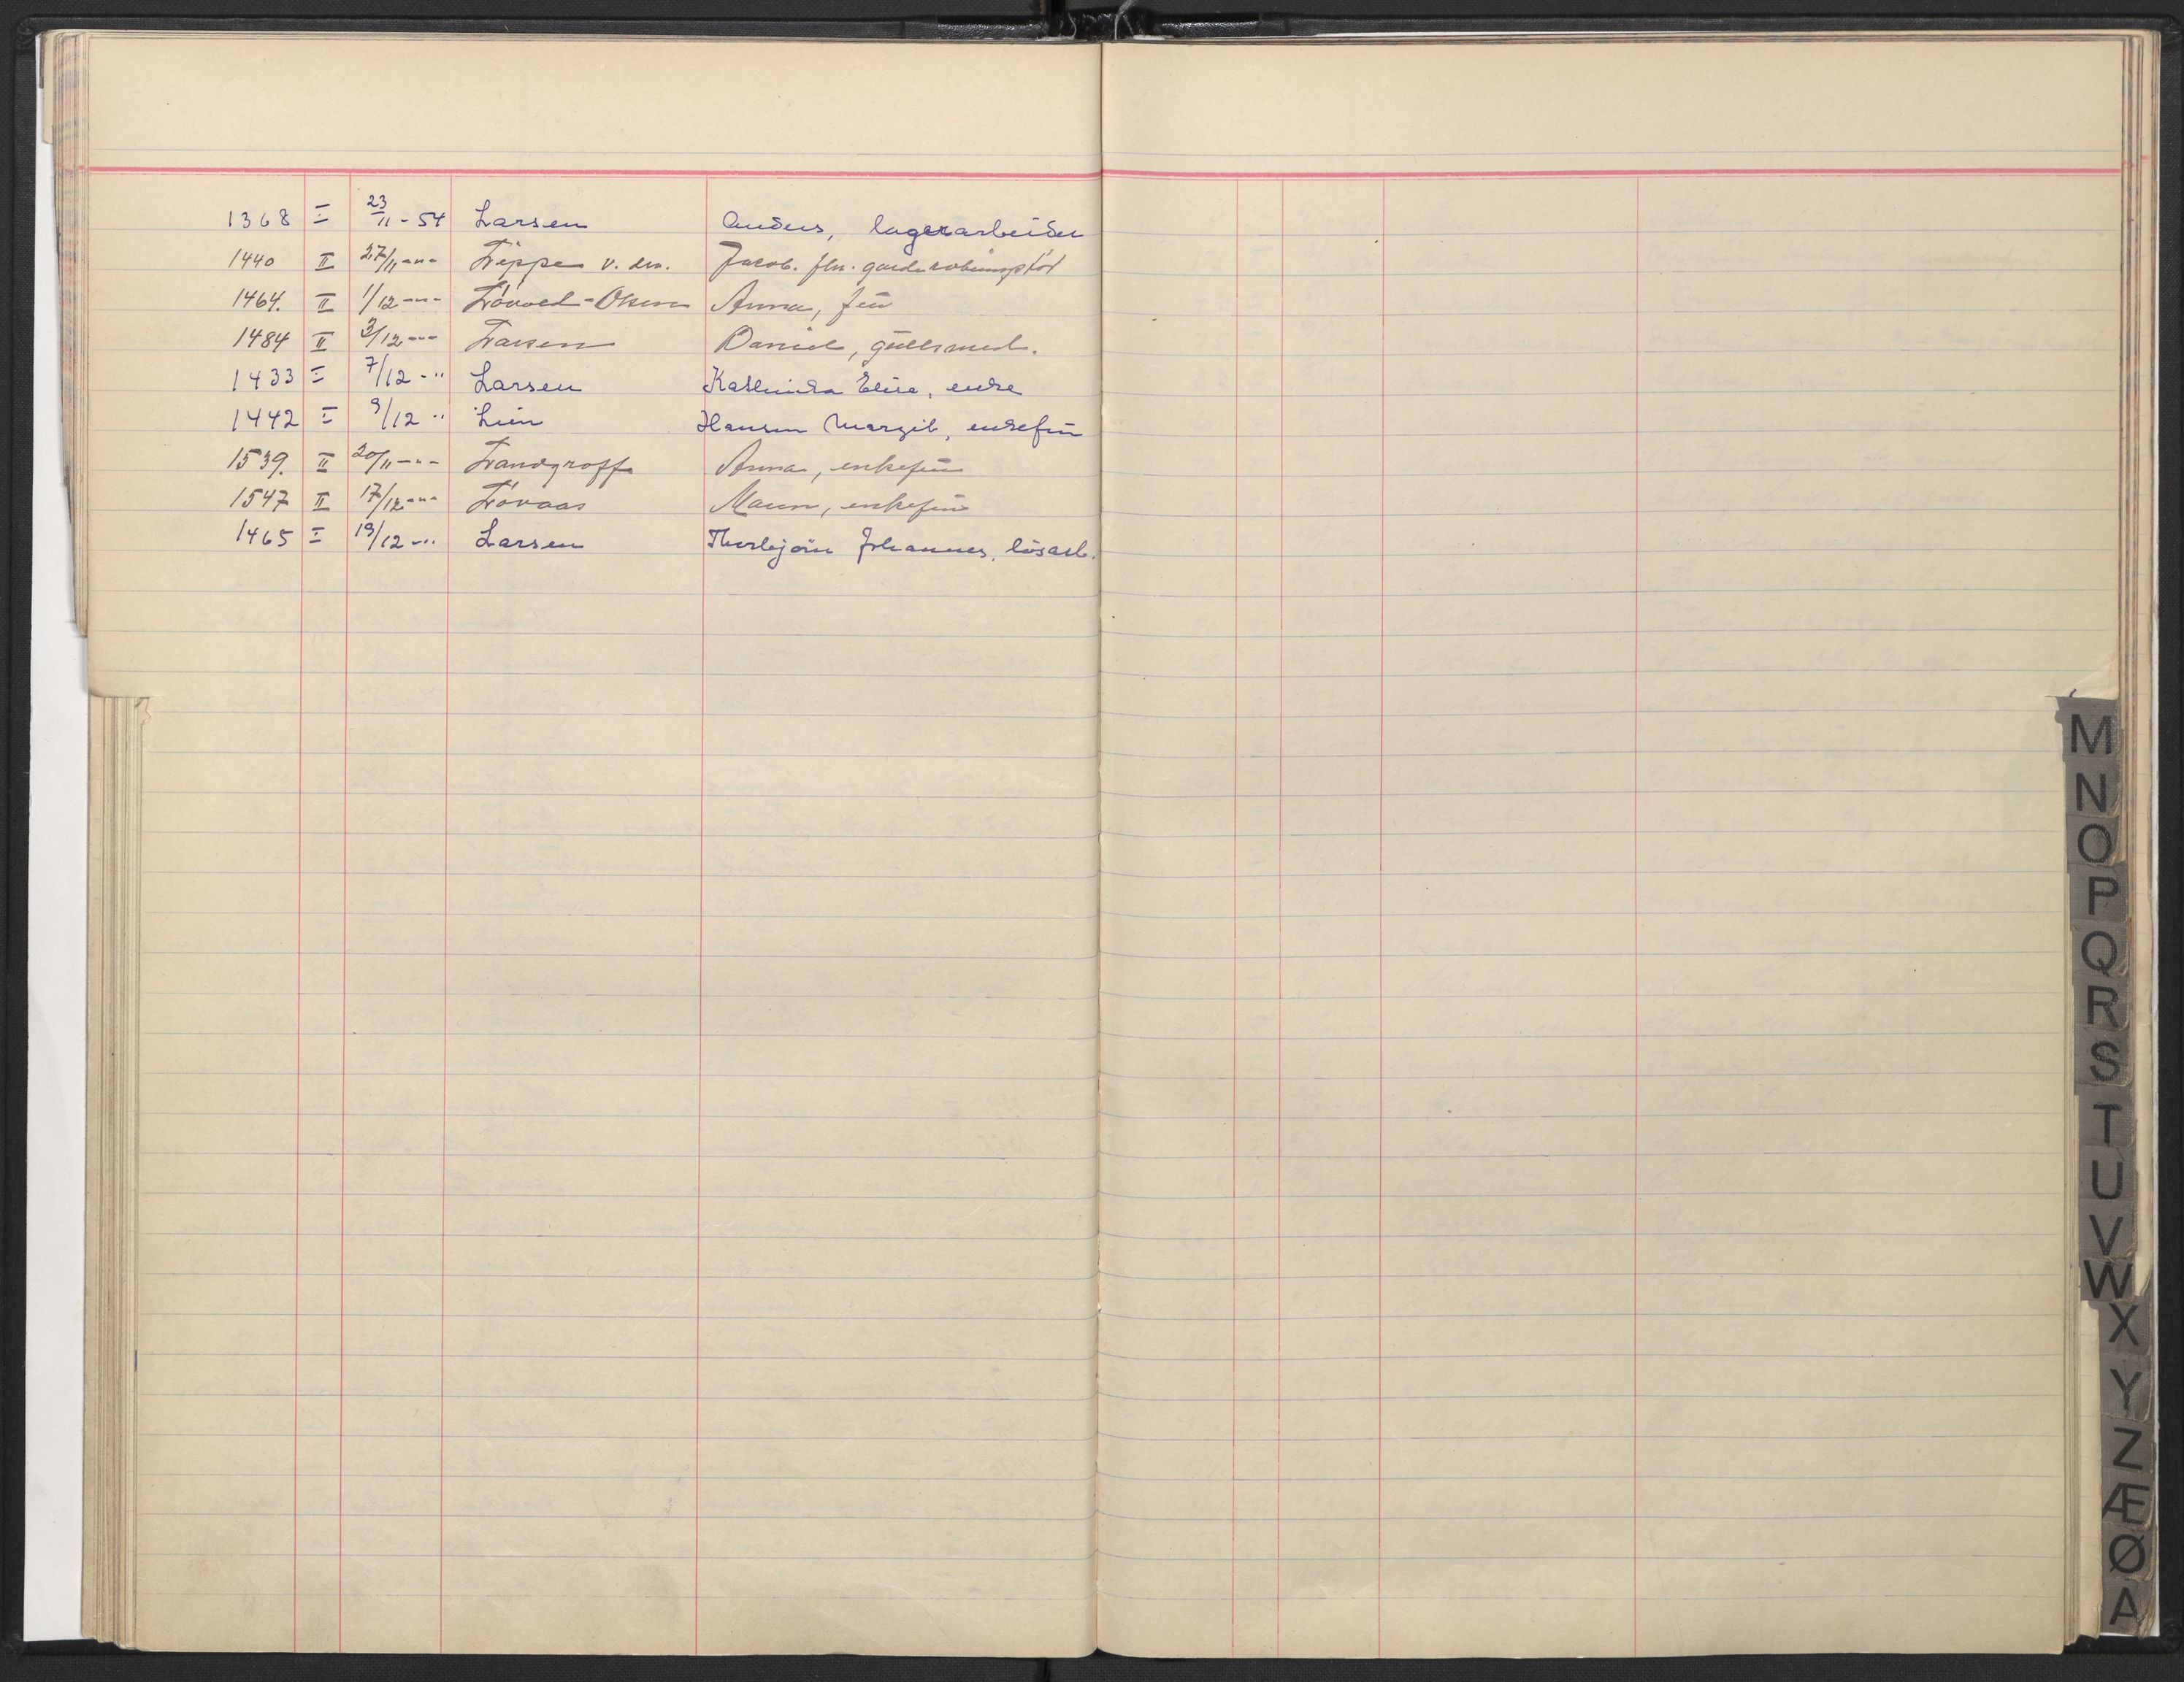 1368 I 23/11-54 Larsen Anders, lagerarbeider
1440 II 27/11 -"- Lippe v. der. Jacob. fhv.
1464. II 1/12 -"- Lövold-Olsen Anna, frü
1484 II 3/12 -"- Larsen Daniel, güllsmed.
1433 I 7/12 -" Larsen Elise, enke
1442 I 9/12 " Lien Hansen Margit, enkefrü
1539. II 20/11 -"- Landgroff Anna, enkefrü
1547 II 17/12 -"- Lövaas enkefrü
1465 I 19/12 -" Larsen Thorbjörn Johannes, lösarb.
M
N
O
P
Q
R
S
T
U
V
W
X
Y
Z
Æ
Ø
A